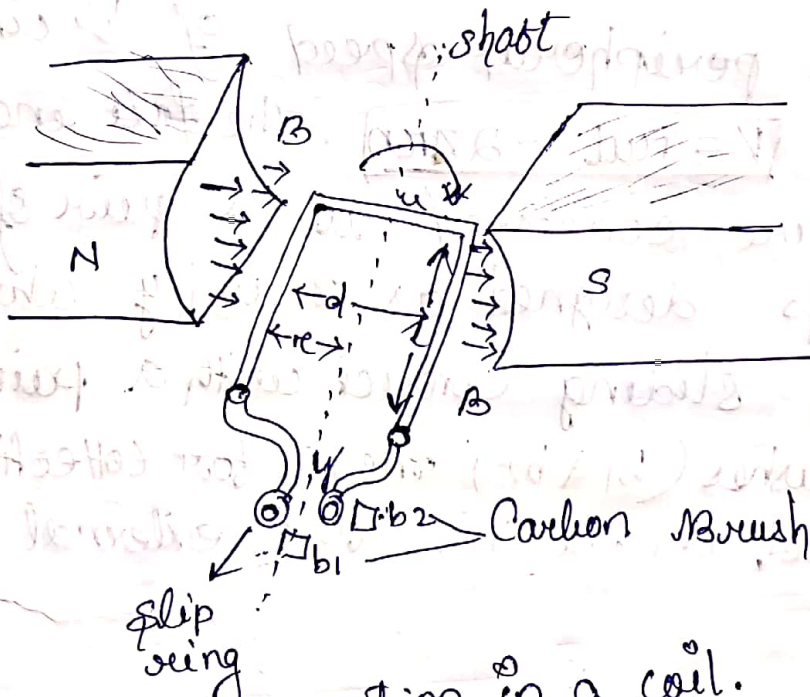 shaft
B
u
N
d
r
S
B
y
b2
Carbon Brush
b1
slip
ring
in a coil.